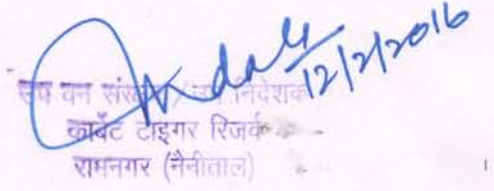 12/2/2016
उप वन संरक्षक/उप निदेशक
कार्बेट टाइगर रिजर्व
रामनगर (नैनीताल)